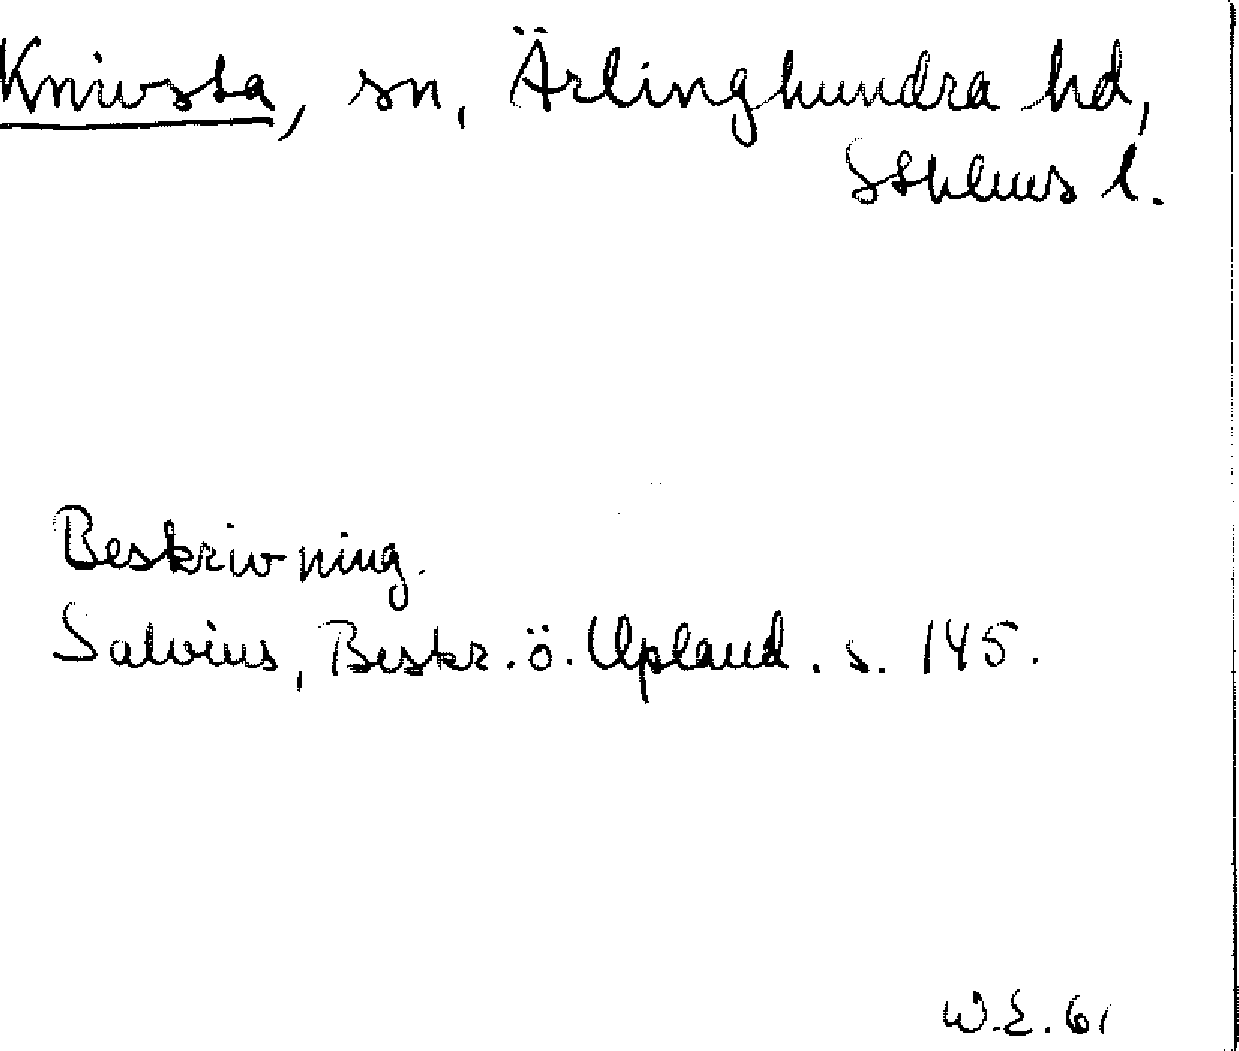 Knivsta, sn, Ärlinghundra hd,
Sthlms l.
Beskrivning.
Salvius, Beskr. ö. Upland. s. 145.
W.E. 61